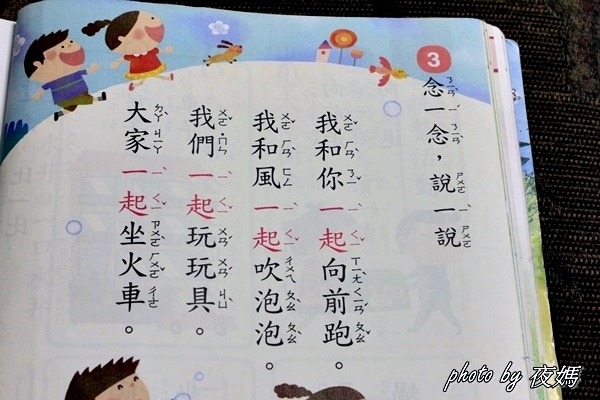 3
念一念，說一說
我和你一起向前跑。
我和風一起吹泡泡。
我們一起玩玩具。
大家一起坐火車。
photo by 夜媽